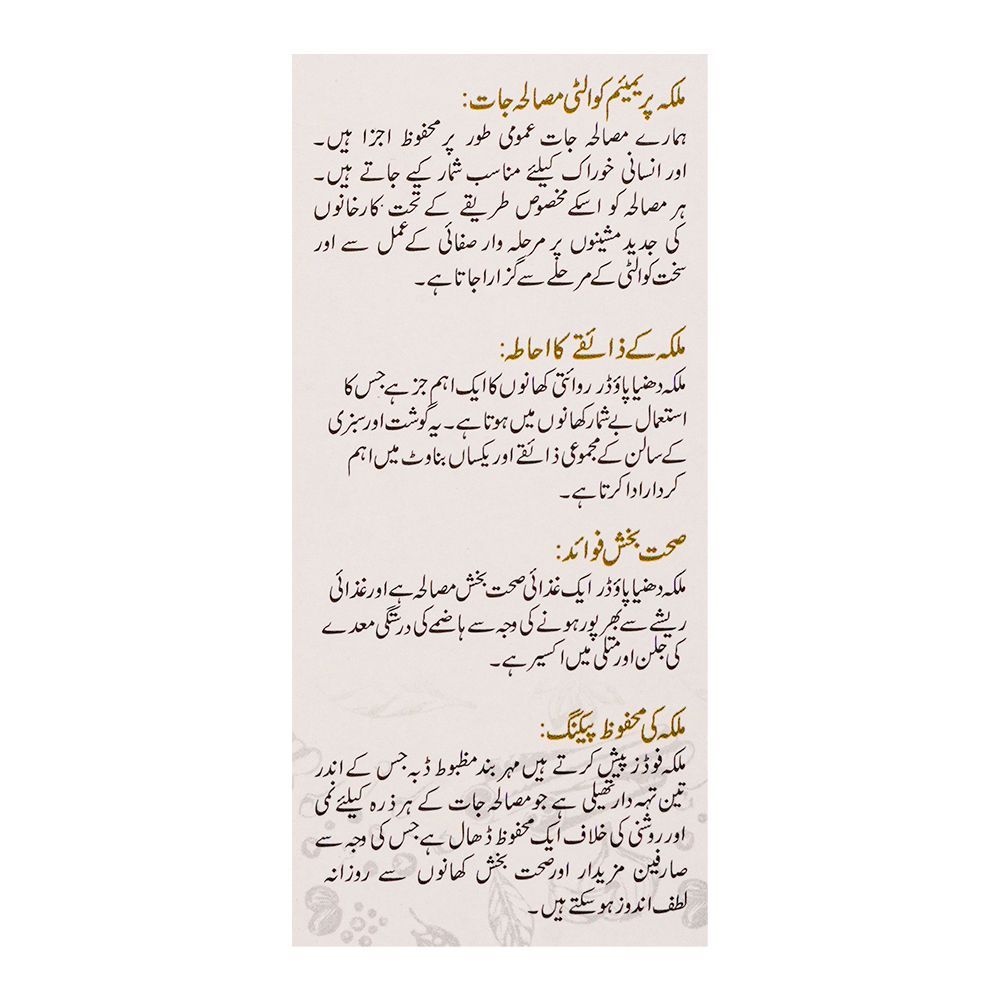 ملکہ پریمیئم کوالٹی مصالحہ جات:
ہمارے مصالحہ جات عمومی طور پر محفوظ اجزا ہیں۔
اور انسانی خوراک کیلئے مناسب شمار کیے جاتے ہیں۔
ہر مصالحہ کو اسکے مخصوص طریقے کے تحت کارخانوں
کی جدید مشینوں پر مرحلہ وار صفائی کے عمل سے اور
سخت کوالٹی کے مرحلے سے گزارا جاتا ہے۔
ملکہ کے ذائقے کا احاطہ:
ملکہ دھنیا پاؤڈر روائتی کھانوں کا ایک اہم جز ہے جس کا
استعمال بے شمار کھانوں میں ہوتا ہے۔ یہ گوشت اور سبزی
کے سالن کے مجموعی ذائقے اور یکساں بناوٹ میں اہم
کردار ادا کرتا ہے۔
صحت بخش فوائد:
ملکہ دھنیا پاؤڈر ایک غذائی صحت بخش مصالحہ ہے اور غذائی
ریشے سے بھرپور ہونے کی وجہ سے ہاضمے کی درستگی معدے
کی جلن اور متلی میں اکسیر ہے۔
ملکہ کی محفوظ پیکنگ:
ملکہ فوڈز پیش کرتے ہیں مہر بند مظبوط ڈبہ جس کے اندر
تین تہہ دار تھیلی ہے جو مصالحہ جات کے ہر ذرہ کیلئے نمی
اور روشنی کی خلاف ایک محفوظ ڈھال ہے جس کی وجہ سے
صارفین مزیدار اور صحت بخش کھانوں سے روزانہ
لطف اندوز ہو سکتے ہیں۔